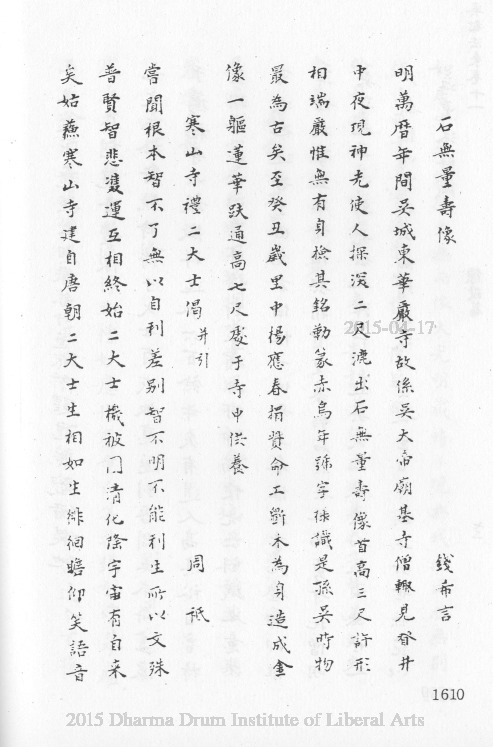 石無量壽像
錢希言
明萬曆年間吳城東華嚴寺故係吳大帝廟基寺僧輙見眢井
中夜現神光使人探沒二尺漉出石無量壽像首高三尺許形
相端嚴惟無有身檢其銘勒篆赤烏年號字樣識是孫吳時物
最為古矣至癸丑歲里中楊應春捐貲命工斵木為身造成金
像一軀蓮華趺通高七尺處于寺中供養
寒山寺禮二大士偈 并引
周祇
嘗聞根本智不了無以自利差別智不明不能利生所以文殊
普賢智悲雙運互相終始二大士機被閻浮化陰宇宙有自来
矣姑蘇寒山寺建自唐朝二大士生相如生徘徊瞻仰笑語音
1610
2015-04-17
2015 Dharma Drum Institute of Liberal Arts